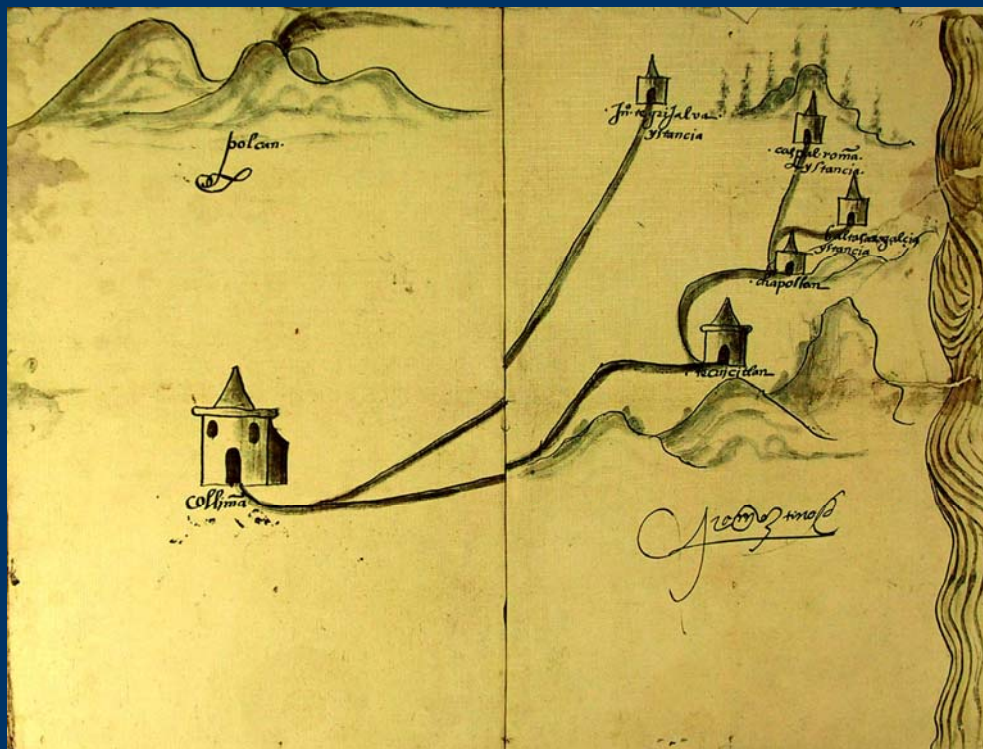 bolcan.
Juº de grijalva
ystancia
caspar romã.
ystancia
baltasar galcia
ystancia
chapollan
tecuicitlan
collimã